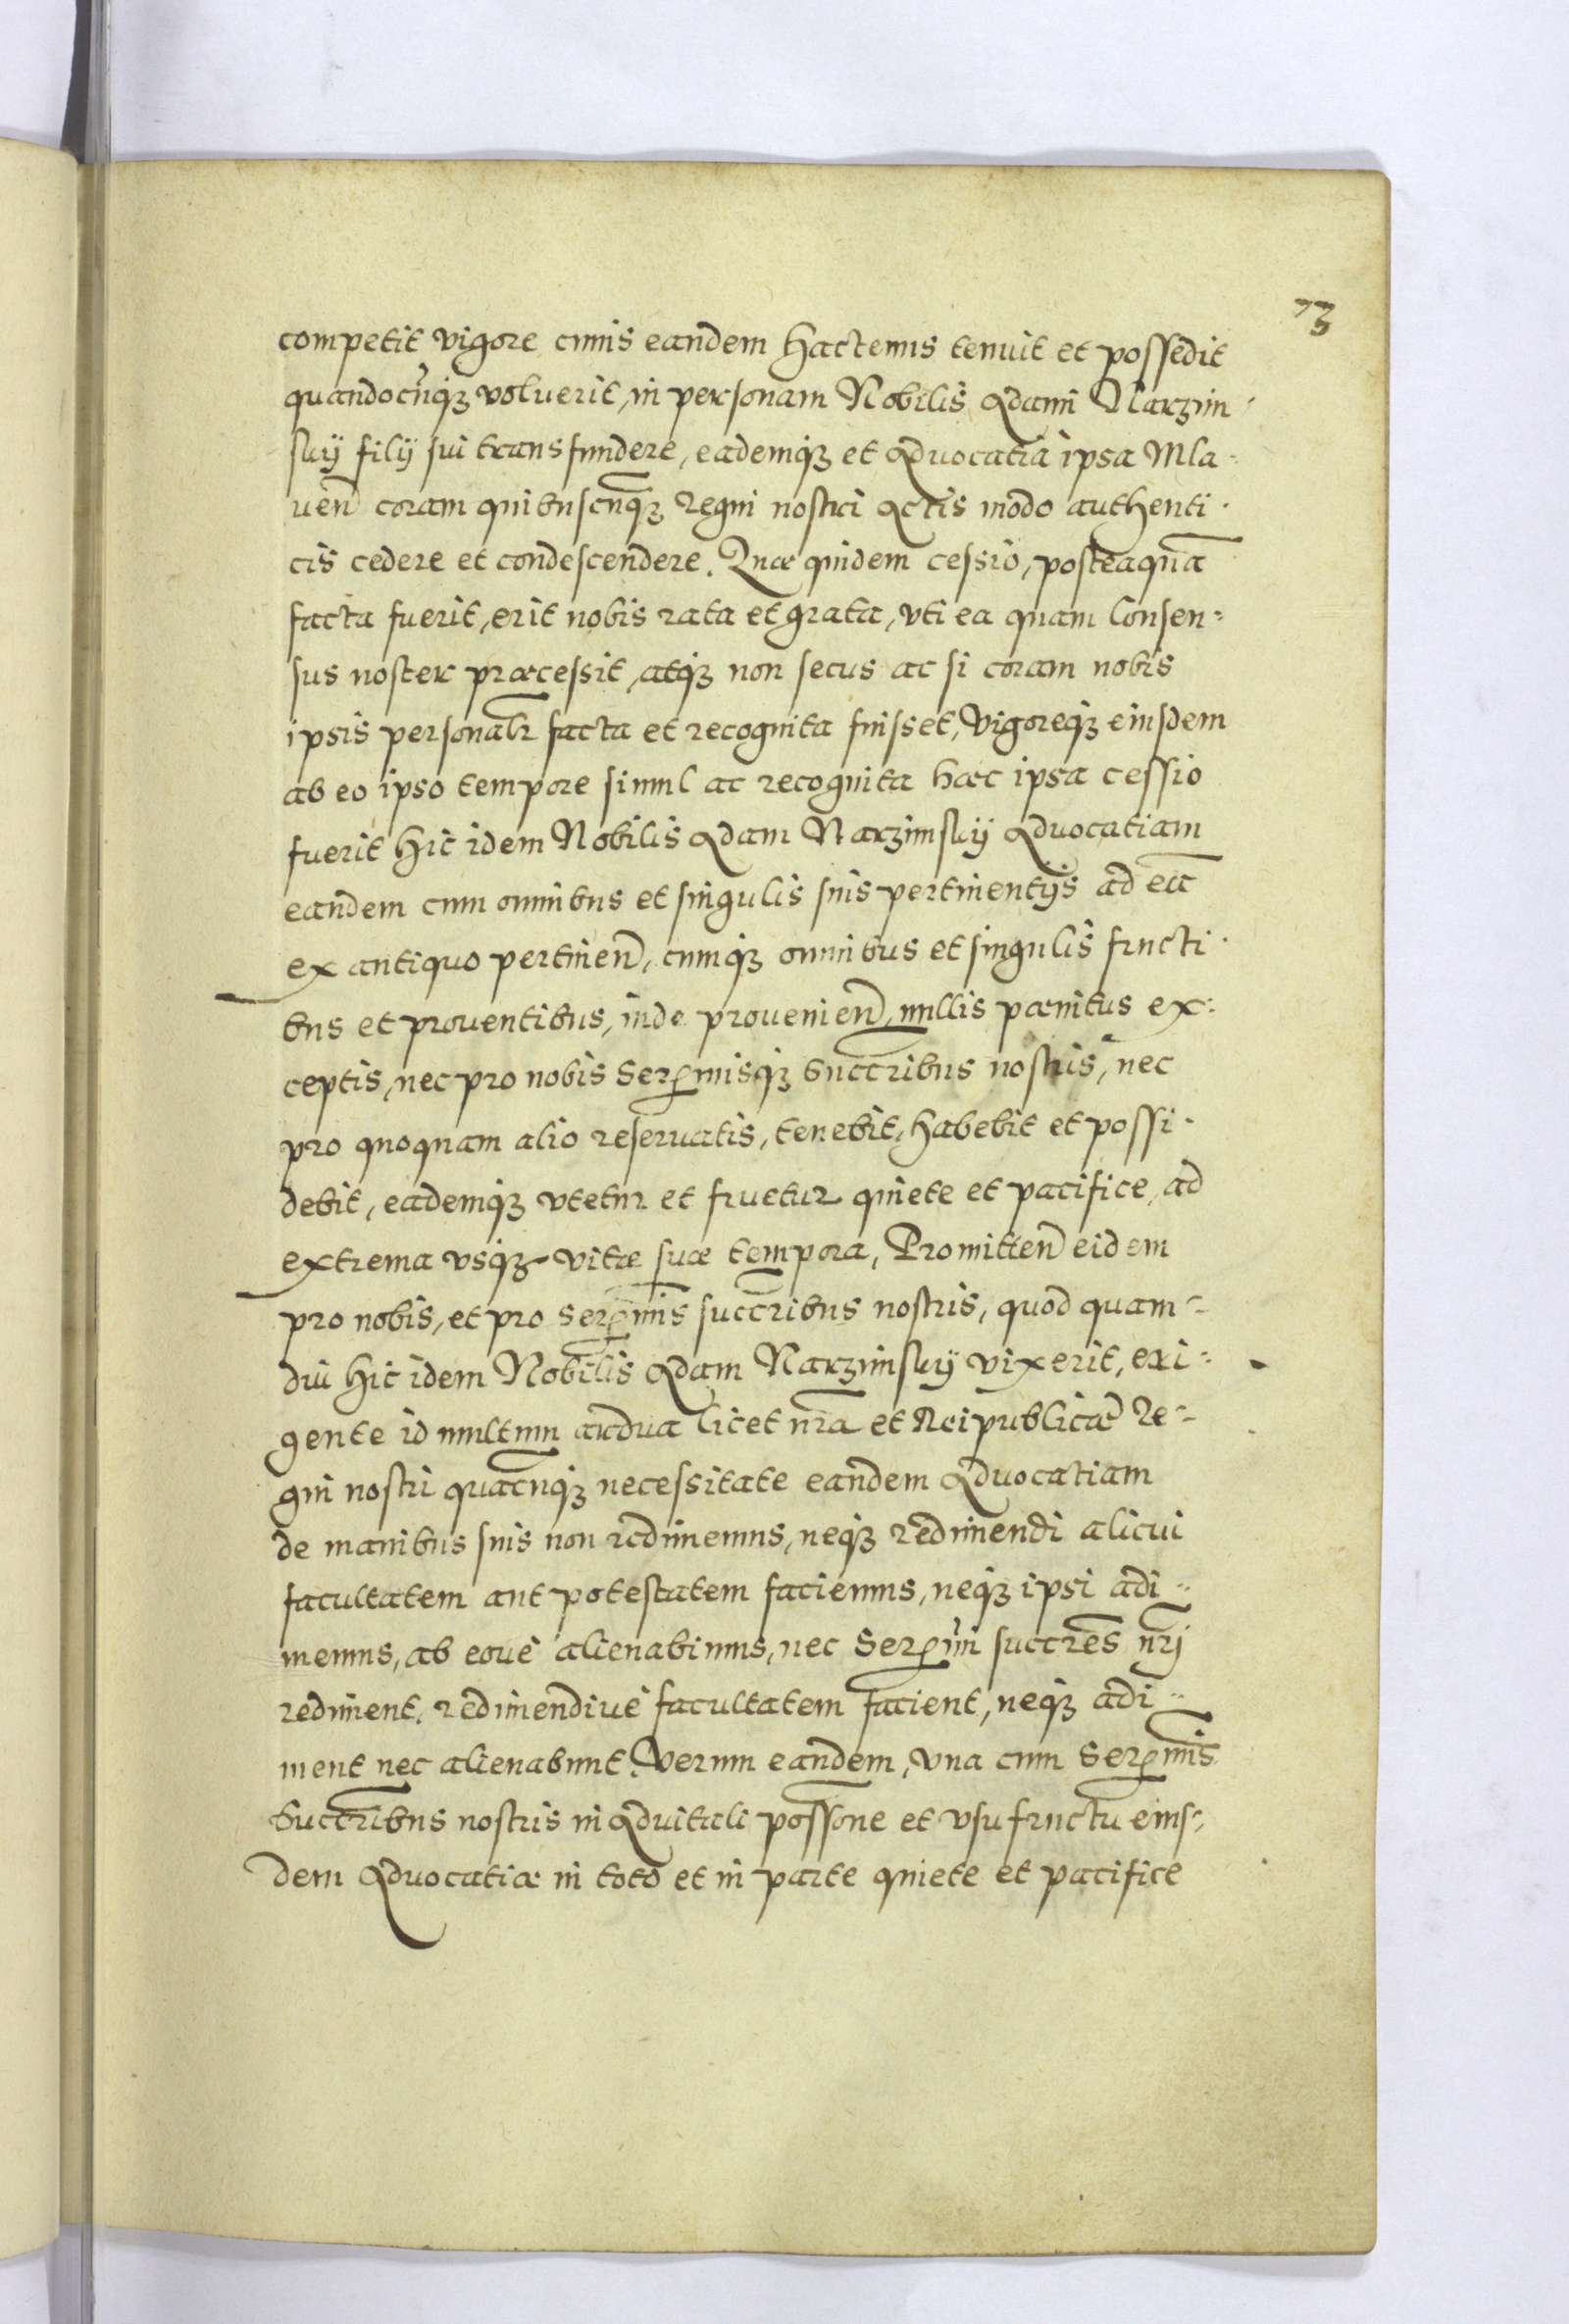 73
competit vigore cuius eandem hactenus tenuit et possedit
quandocunq; voluerit, in personam Nobilis Adami Narzim⸗
skij filij sui transfundere, eademq; et Advocatia ipsa Mla⸗
uen̄ coram quibuscunq; regni nostri Actis modo authenti⸗
cis cedere et condescendere. Quæ quidem cessio, posteaquā
facta fuerit, erit nobis rata et grata, vti ea quam Consen⸗
sus noster præcessit, atq; non secus ac si coram nobis
ipsis personalr̄ facta et recognita fuisset, Vigoreq; eiusdem
ab eo ipso tempore simul ac recognita hæc ipsa cessio
fuerit Hic idem Nobilis Adam Narzimskij Aduocatiam
eandem cum omnibus et singulis suis pertinentijs ad eā
ex antiquo pertinen̄, cumq; omnibus et singulis fructi⸗
bus et prouentibus, inde prouenien̄, nullis pænitus ex⸗
ceptis, nec pro nobis Sermisq; Succribus nostris, nec
pro quoquam alio reseruatis, tenebit, habebit et possi⸗
debit, eademq; vtetur et fruetur quiete et pacifice, ad
extrema vsq; vitæ suæ tempora, Promitten̄ eidem
pro nobis, et pro Sermis succribus nostris, quod quam⸗
diu hic idem Nobilis Adam Narzimskij vixerit, exi⸗
gente id multum ardua licet nr̄a et Reipublicæ Re⸗
gni nostri quacunq; necessitate eandem Aduocatiam
de manibus suis non redimemus, neq; redimendi alicui
facultatem aut potestatem faciemus, neq; ipsi adi⸗
memus, ab eoue alienabimus, nec Sermi succres nr̄j
rediment, redimendiue facultatem facient, neq; adi⸗
ment nec alienabunt. Verum eandem, vna cum Sermis
Succribus nostris in Aduitali possone et vsufructu eius⸗
dem Aduocatiæ in toto et in parte quiete et pacifice